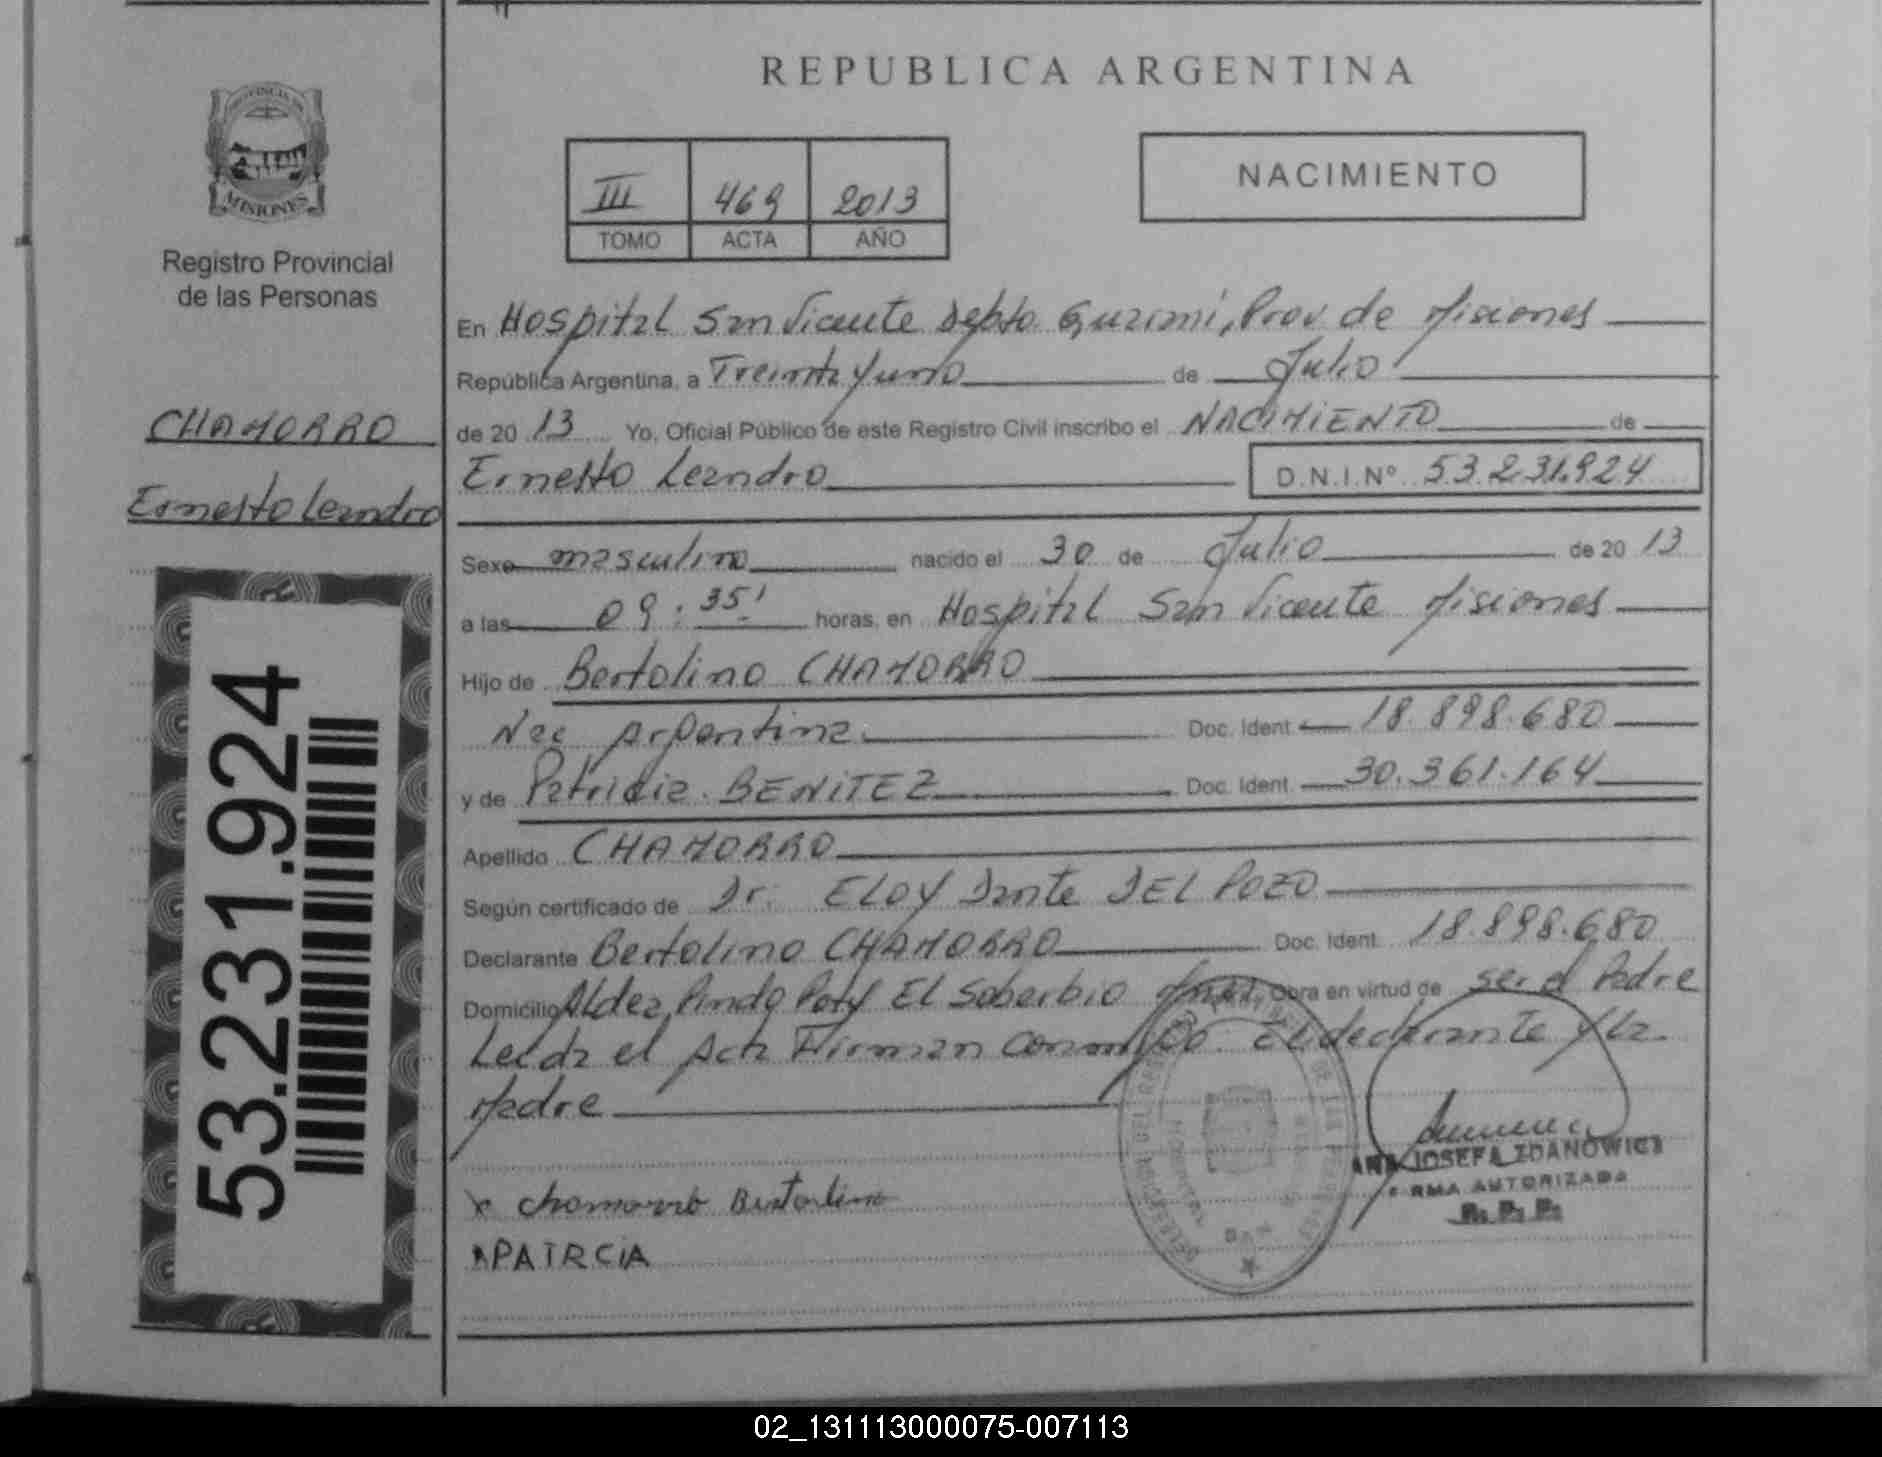 REPUBLICA ARGENTINA
PROVINCIA DE
MISIONES
Registro Provincial
de las Personas
III 469 2013
TOMO ACTA AÑO
NACIMIENTO
CHAMORRO
Ernesto Leandro
53.231.924
En Hospital San Vicente Depto Guarani, Prov de Misiones
República Argentina, a Treinta y uno de Julio
de 20 13 Yo, Oficial Público de este Registro Civil inscribo el NACIMIENTO de
Ernesto Leandro D.N.I.Nº 53.231.924
Sexo masculino nacido el 30 de Julio de 20 13
a las 09:35' horas, en Hospital San Vicente Misiones
Hijo de Bertolino CHAMORRO
Nac Argentina Doc. Ident. 18.898.680
y de Patricia BENITEZ Doc. Ident. 30.361.164
Apellido CHAMORRO
Según certificado de Dr. ELOY Dante DEL POZO
Declarante Bertolino CHAMORRO Doc. Ident. 18.898.680
Domicilio Aldea Pindo Poty El Soberbio Obra en virtud de ser el Padre
Leida el Acta Firman Conmigo El declarante y la
Madre
x Chamorro Bertolino
PATRCIA
ANA JOSEFA ZDANOWICZ
FIRMA AUTORIZADA
R. P. P.
02_131113000075-007113